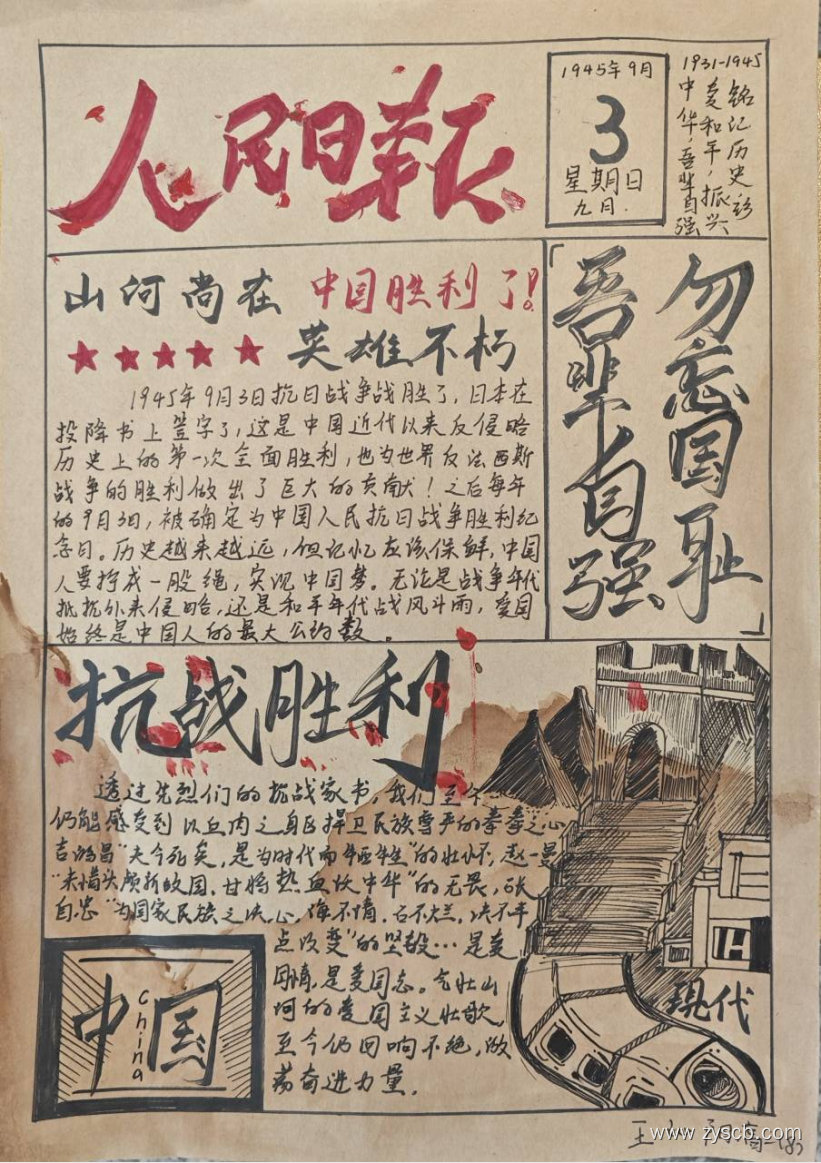 人民日报
1945年9月
3
星期日
九月.
1931-1945
铭记历史
爱和平,振兴
中华,吾辈自强
山河尚在 中国胜利了!
英雄不朽
「勿忘国耻
吾辈自强」
1945年9月3日抗日战争战胜了,日本在
投降书上签字了,这是中国近代以来反侵略
历史上的第一次全面胜利,也为世界反法西斯
战争的胜利做出了巨大的贡献!之后每年
的9月3日,被确定为中国人民抗日战争胜利纪
念日。历史越来越远,但记忆应该保鲜,中国
人要拧成一股绳,实现中国梦。无论是战争年代
抵抗外来侵略,还是和平年代战风斗雨,爱国
始终是中国人的最大公约数。
抗战胜利
透过先烈们的抗战家书,我们至今
仍能感受到以血肉之身躯捍卫民族尊严的拳拳之心
吉鸿昌"夫今死矣,是为时代而牺牲"的壮怀,赵一曼
"未惜头颅新故国,甘将热血沃中华"的无畏,张
自忠"为国家民族之决心,海不清,石不烂,决不半
点改变"的坚毅…是爱
国情,是爱国志。气壮山
河的爱国主义壮歌,
至今仍回响不绝,激
荡奋进力量.
中国
china
现代
高一(8)
www.zyscb.com